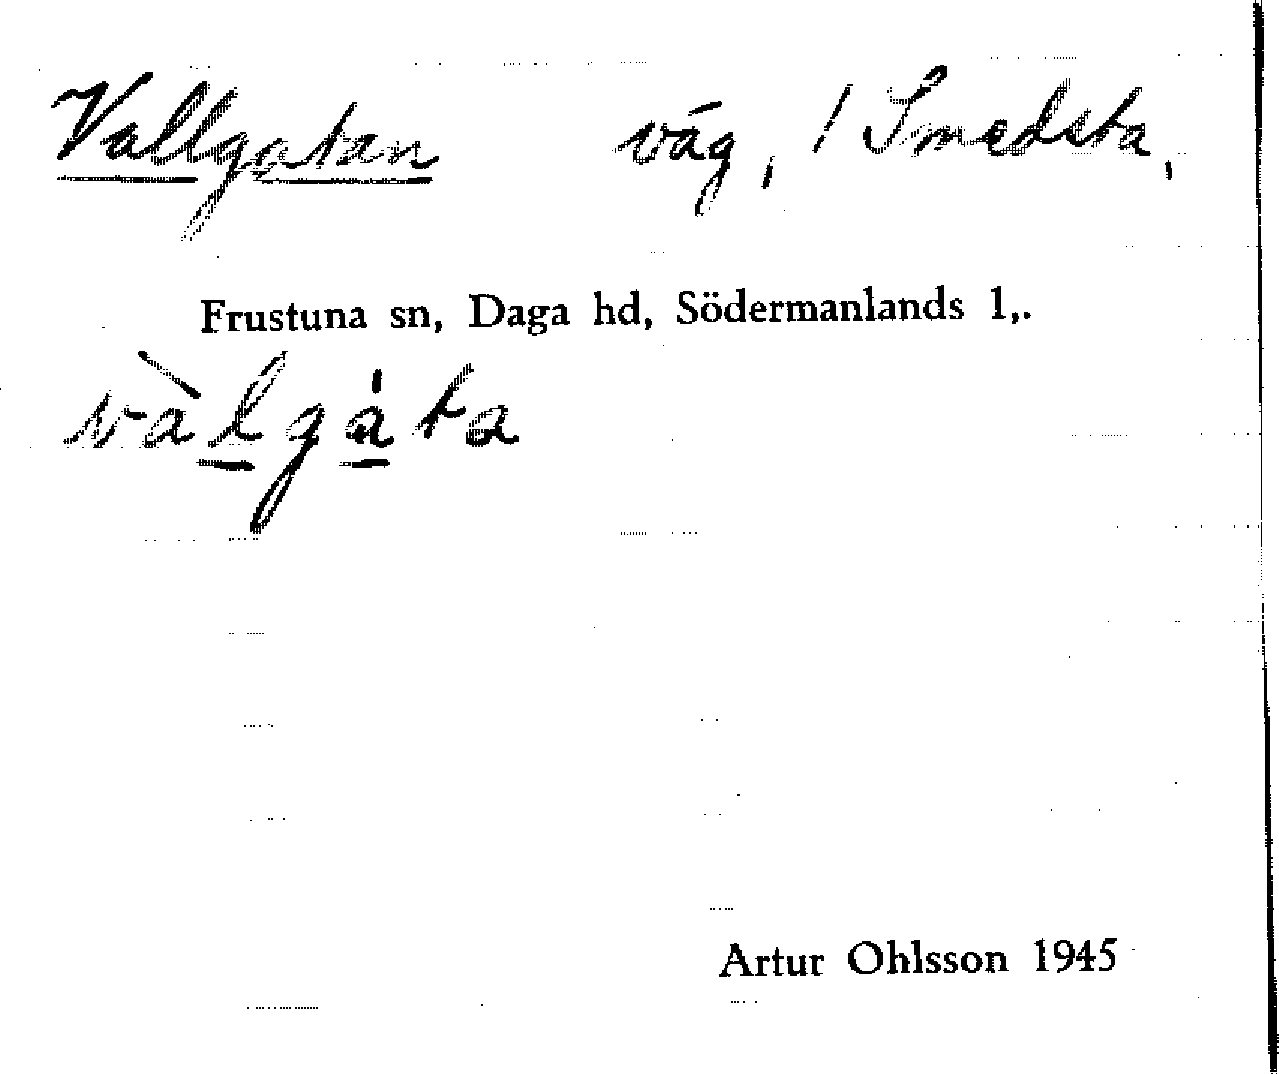 Vallgatan väg, / Smedsta,
Frustuna sn, Daga hd, Södermanlands l,.
vàlgáta
Artur Ohlsson 1945